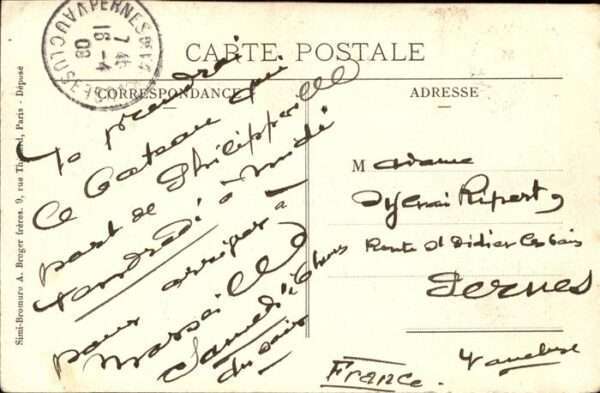 CARTE POSTALE
CORRESPONDANCE
ADRESSE
PERNES
7 45
18 -4
08
VAUCLUSE
Simi-Bromure A. Breger frères. 9, rue Thénard, Paris - Déposé
Je prendrai
le bateau qui
part de Philippeville
Vendredi à midi
pour arriver à
Marseille
Samedi à heures
du soir
Madame
Sylvain Ripert
Route St Didier les bains
Pernes
Vaucluse
France.